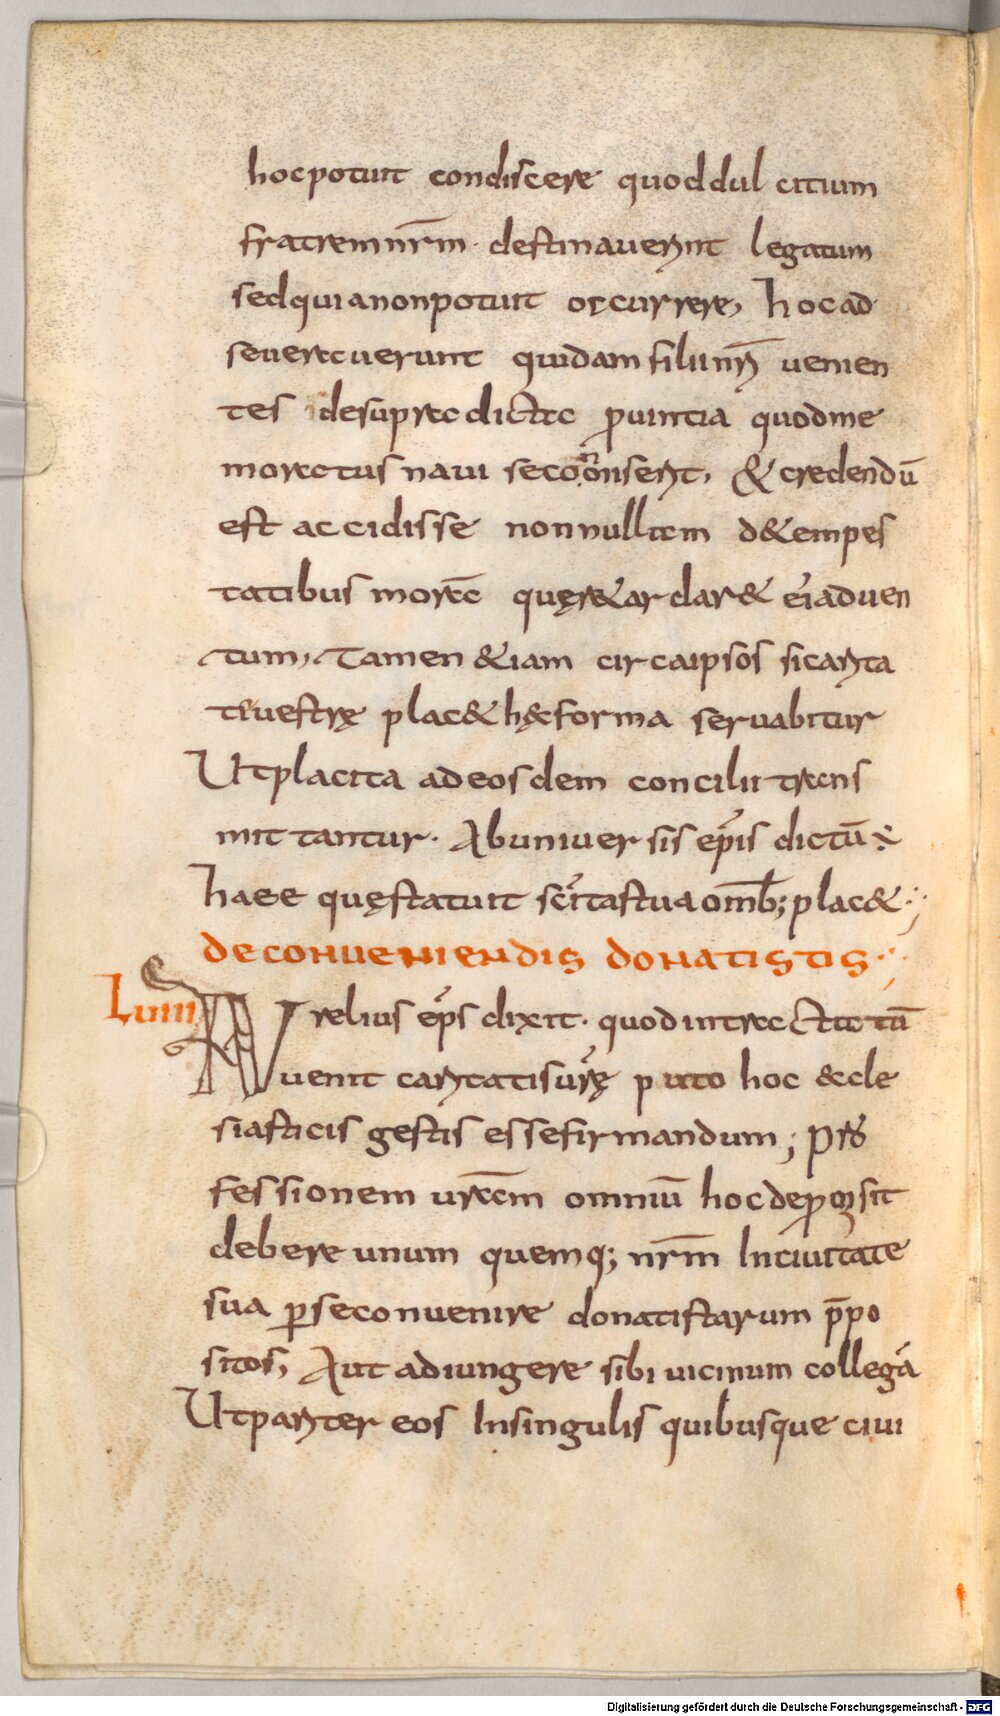 hocpotuit condiscere quoddulcitium
fratremnr̄m · destinauerint legatum
sedquianonpotuit occurrere, hocad
seueraruerunt quidamfiliinr̄i uenien
tes desupradictae prouintia quodme
moratus naui seconsenserit, & credendū
est accidisse nonnullam d&empes
tatibus morā quęr&ardar& ei aduen
tum, Tamen &iam circaipsos sicarita
ti uestrę plac& hęc forma seruabitur
Utplacita adeosdem concilii trans
mittantur · Ab uniuersis ep̄is dictū ÷
haec quęstatuit sc̄itas tua omīb; plac& ·
de conueniendis donatistis ·
Lxuiiii Aurelius ep̄s dixit · quodintractatū
uenit caritatisur̄ę puto hoc &cle
siasticis gestis essefirmandum ; pro
fessionem ur̄am omniū hocdeprompsit
debere unum quemq; nr̄m Inciuitate
sua p̱seconuenire donatistarum p̄po
sitos, Aut adiungere sibi uicinum collegā
Utpariter eos Insingulis quibusque ciui
Digitalisierung gefördert durch die Deutsche Forschungsgemeinschaft - DFG